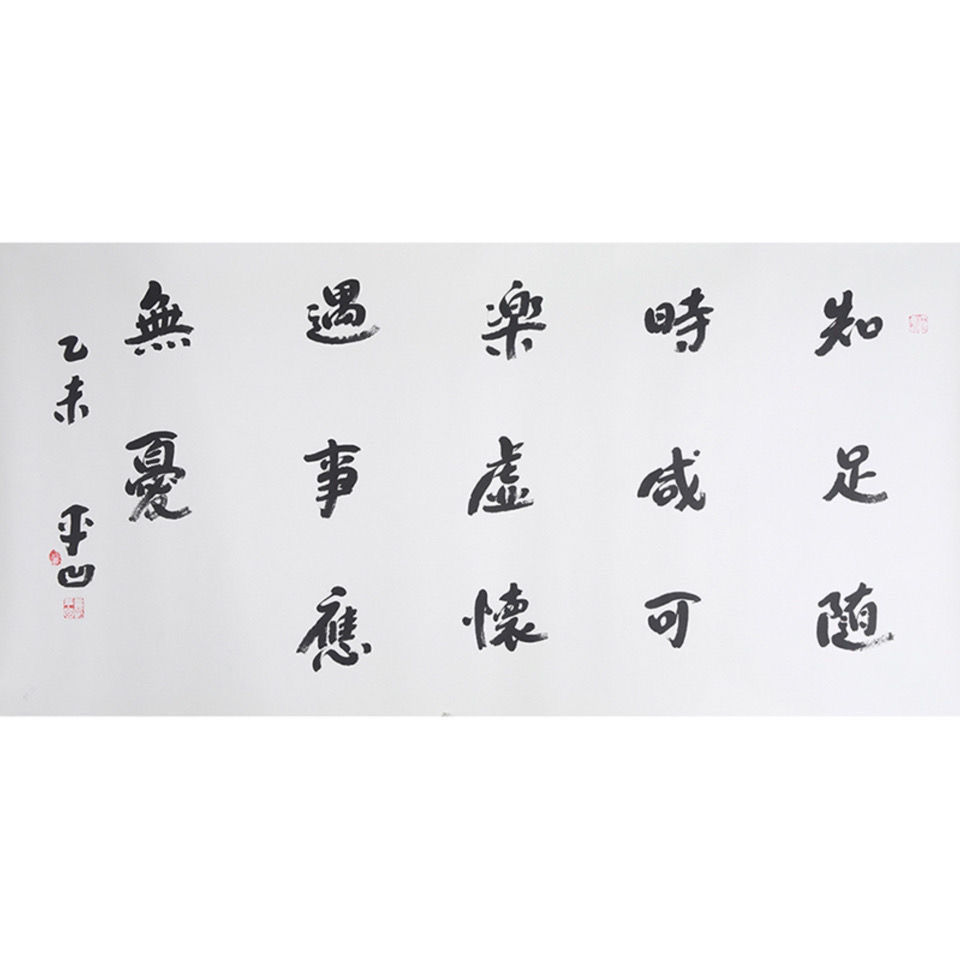 知足随
時咸可
楽虚懷
遇事應
無憂
乙未 平凹